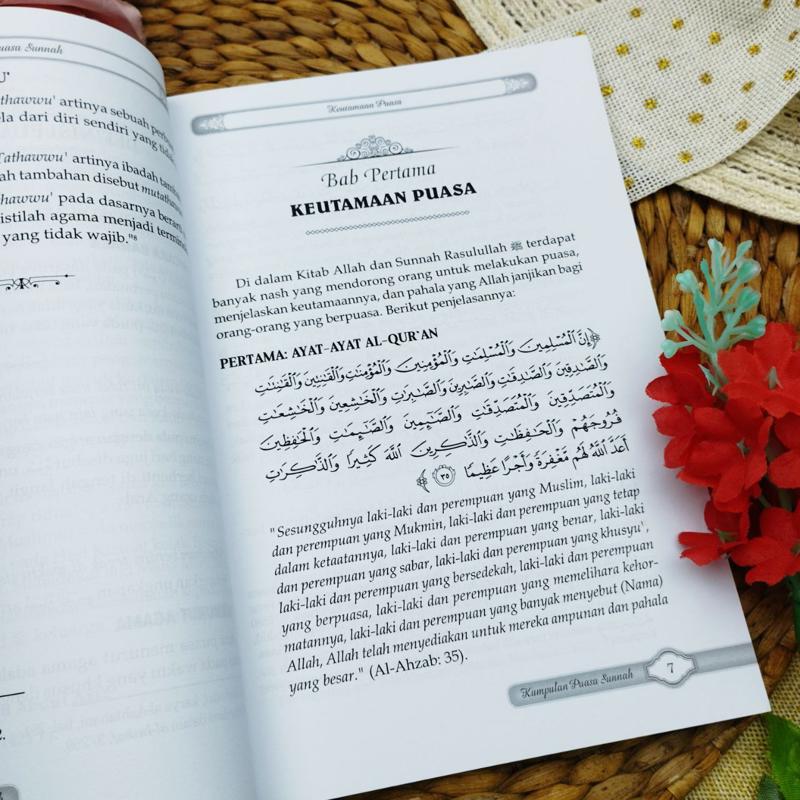 Puasa Sunnah
artinya sebuah
dari diri sendiri yang
Tathawwu' artinya ibadah
tambahan disebut
pada dasarnya
istilah agama menjadi
yang tidak wajib."⁸
Keutamaan Puasa
Bab Pertama
KEUTAMAAN PUASA
Di dalam Kitab Allah dan Sunnah Rasulullah ﷺ terdapat
banyak nash yang mendorong orang untuk melakukan puasa,
menjelaskan keutamaannya, dan pahala yang Allah janjikan bagi
orang-orang yang berpuasa. Berikut penjelasannya:
PERTAMA: AYAT-AYAT AL-QUR`AN
﴿إِنَّ ٱلْمُسْلِمِينَ وَٱلْمُسْلِمَٰتِ وَٱلْمُؤْمِنِينَ وَٱلْمُؤْمِنَٰتِ وَٱلْقَٰنِتِينَ وَٱلْقَٰنِتَٰتِ
وَٱلصَّٰدِقِينَ وَٱلصَّٰدِقَٰتِ وَٱلصَّٰبِرِينَ وَٱلصَّٰبِرَٰتِ وَٱلْخَٰشِعِينَ وَٱلْخَٰشِعَٰتِ
وَٱلْمُتَصَدِّقِينَ وَٱلْمُتَصَدِّقَٰتِ وَٱلصَّٰٓئِمِينَ وَٱلصَّٰٓئِمَٰتِ وَٱلْحَٰفِظِينَ
فُرُوجَهُمْ وَٱلْحَٰفِظَٰتِ وَٱلذَّٰكِرِينَ ٱللَّهَ كَثِيرًا وَٱلذَّٰكِرَٰتِ
أَعَدَّ ٱللَّهُ لَهُم مَّغْفِرَةً وَأَجْرًا عَظِيمًا ٣٥﴾
"Sesungguhnya laki-laki dan perempuan yang Muslim, laki-laki
dan perempuan yang Mukmin, laki-laki dan perempuan yang tetap
dalam ketaatannya, laki-laki dan perempuan yang benar, laki-laki
dan perempuan yang sabar, laki-laki dan perempuan yang khusyu',
laki-laki dan perempuan yang bersedekah, laki-laki dan perempuan
yang berpuasa, laki-laki dan perempuan yang memelihara kehor-
matannya, laki-laki dan perempuan yang banyak menyebut (Nama)
Allah, Allah telah menyediakan untuk mereka ampunan dan pahala
yang besar." (Al-Ahzab: 35).
Kumpulan Puasa Sunnah 7